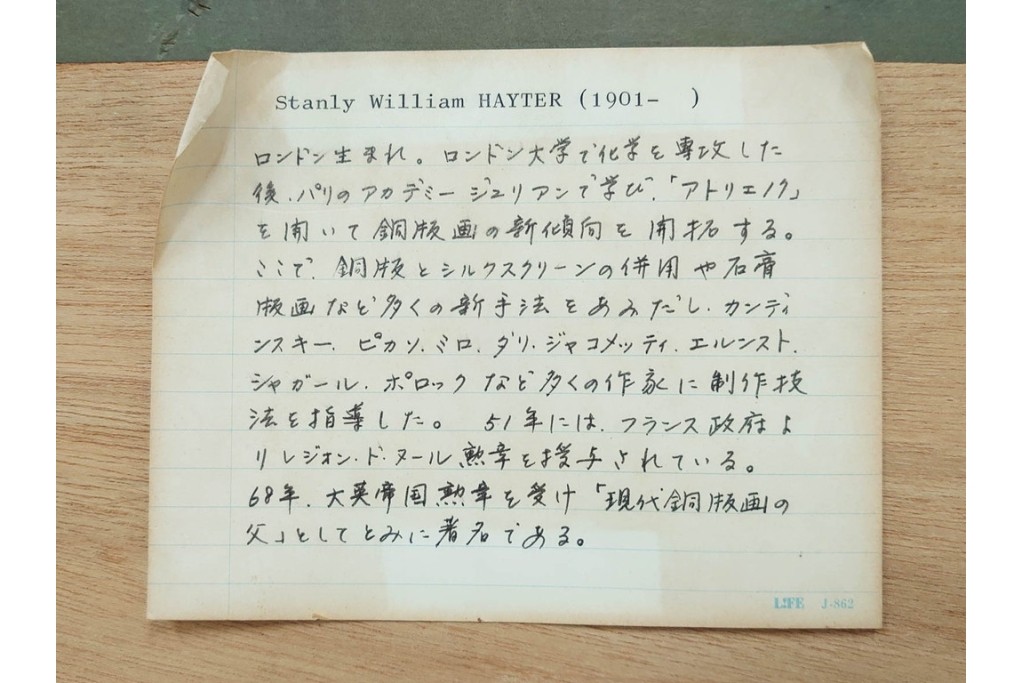 Stanly William HAYTER (1901-　)
ロンドン生まれ。ロンドン大学で化学を専攻した
後、パリのアカデミージュリアンで学び、「アトリエ17」
を開いて銅版画の新傾向を開拓する。
ここで、銅版とシルクスクリーンの併用や石膏
版画など多くの新手法をあみだし、カンディ
ンスキー、ピカソ、ミロ、ダリ、ジャコメッティ、エルンスト、
シャガール、ポロックなど多くの作家に制作技
法を指導した。　51年には、フランス政府よ
りレジオン・ド・ヌール勲章を授与されている。
68年、大英帝国勲章を受け「現代銅版画の
父」としてとみに著名である。
LIFE J-862